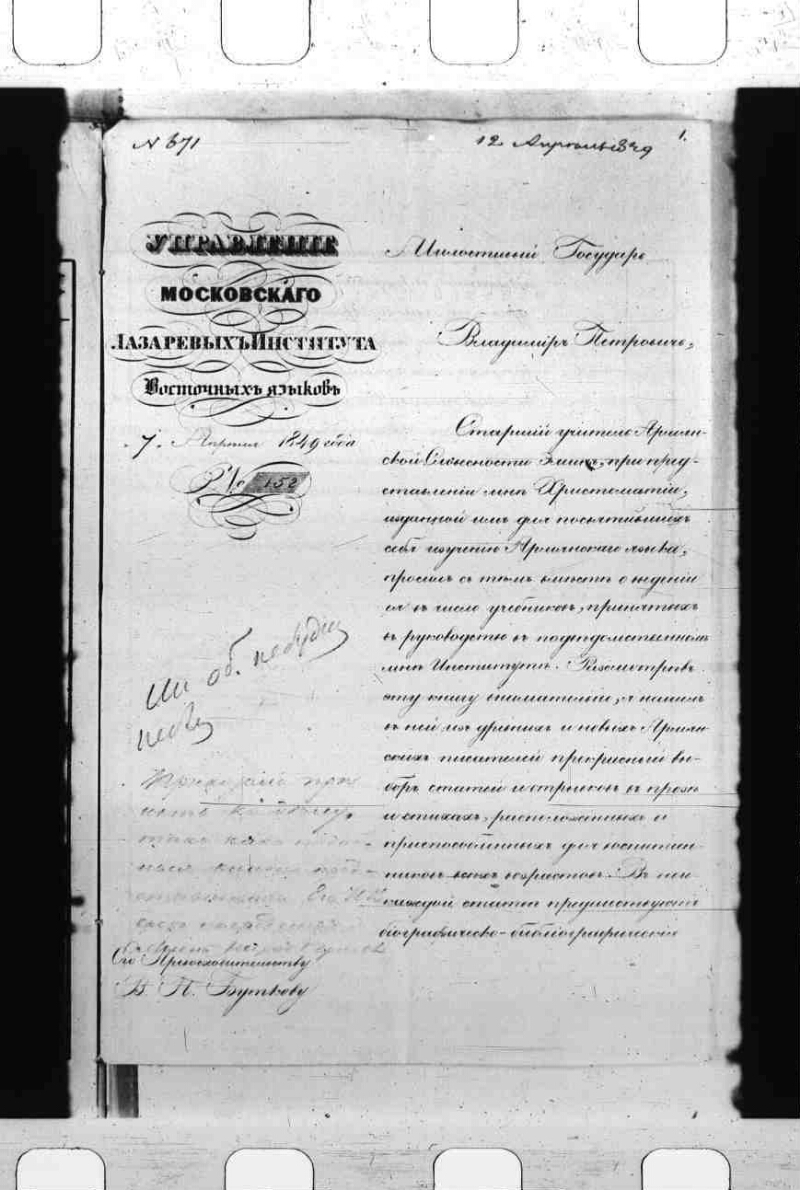 N 671
12 Апрѣля 1849
1.
УПРАВЛЕНІЕ
МОСКОВСКАГО
ЛАЗАРЕВЫХЪ ИНСТИТУТА
ВОСТОЧНЫХЪ ЯЗЫКОВЪ
7. Апрѣля 1849 года
№ 152
Милостивый Государь
Владиміръ Петровичь,
Старшій учитель Армян-
ской Словесности Эминъ, при пред-
ставленіи мнѣ Христоматіи,
изданной имъ для посвятившихъ
себя изученію Армянскаго языка,
просилъ съ тѣмъ вмѣстѣ о введеніи
ея въ число учебниковъ, принятыхъ
къ руководству въ подвѣдомственномъ
мнѣ Институтѣ. Разсмотрѣвъ
эту книгу внимательно, я нашелъ
въ ней изъ древнихъ и новыхъ Армян-
скихъ писателей прекрасный вы-
боръ статей и отрывковъ въ прозѣ
и стихахъ, расположенныхъ и
приспособленныхъ для воспитан-
никовъ всѣхъ возрастовъ. Въ ней
каждой статьѣ предшествуютъ
біографическо-библіографическія
Его Превосходительству
В. П. Буткову